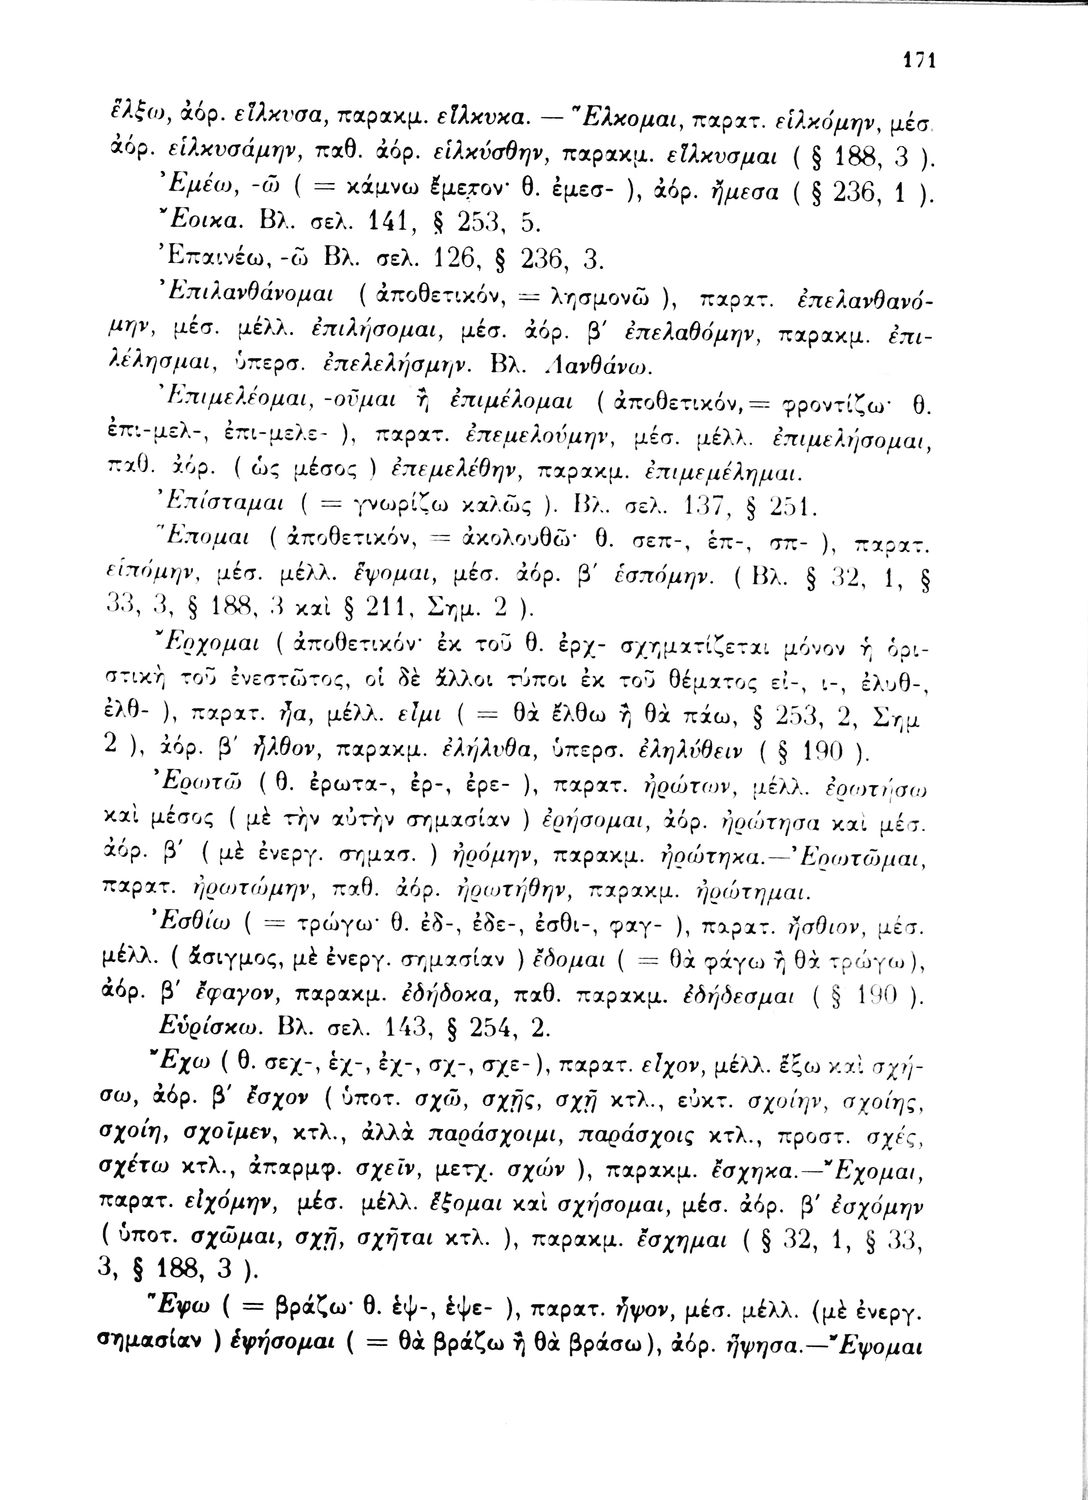 171
ἕλξω, ἀόρ. εἵλκυσα, παρακμ. εἵλκυκα. — Ἕλκομαι, παρατ. εἱλκόμην, μέσ.
ἀόρ. εἱλκυσάμην, παθ. ἀόρ. εἱλκύσθην, παρακμ. εἵλκυσμαι ( § 188, 3 ).
Ἐμέω, -ῶ ( = κάμνω ἔμετον· θ. ἐμεσ- ), ἀόρ. ἤμεσα ( § 236, 1 ).
Ἔοικα. Βλ. σελ. 141, § 253, 5.
Ἐπαινέω, -ῶ Βλ. σελ. 126, § 236, 3.
Ἐπιλανθάνομαι ( ἀποθετικόν, = λησμονῶ ), παρατ. ἐπελανθανό-
μην, μέσ. μέλλ. ἐπιλήσομαι, μέσ. ἀόρ. β′ ἐπελαθόμην, παρακμ. ἐπι-
λέλησμαι, ὑπερσ. ἐπελελήσμην. Βλ. Λανθάνω.
Ἐπιμελέομαι, -οῦμαι ἢ ἐπιμέλομαι ( ἀποθετικόν, = φροντίζω· θ.
ἐπι-μελ-, ἐπι-μελε- ), παρατ. ἐπεμελούμην, μέσ. μέλλ. ἐπιμελήσομαι,
παθ. ἀόρ. ( ὡς μέσος ) ἐπεμελέθην, παρακμ. ἐπιμεμέλημαι.
Ἐπίσταμαι ( = γνωρίζω καλῶς ). Βλ. σελ. 137, § 251.
Ἕπομαι ( ἀποθετικόν, = ἀκολουθῶ· θ. σεπ-, ἑπ-, σπ- ), παρατ.
εἱπόμην, μέσ. μέλλ. ἕψομαι, μέσ. ἀόρ. β′ ἑσπόμην. ( Βλ. § 32, 1, §
33, 3, § 188, 3 καὶ § 211, Σημ. 2 ).
Ἔρχομαι ( ἀποθετικόν· ἐκ τοῦ θ. ἐρχ- σχηματίζεται μόνον ἡ ὁρι-
στικὴ τοῦ ἐνεστῶτος, οἱ δὲ ἄλλοι τύποι ἐκ τοῦ θέματος εἰ-, ι-, ἐλυθ-,
ἐλθ- ), παρατ. ᾖα, μέλλ. εἶμι ( = θὰ ἔλθω ἢ θὰ πάω, § 253, 2, Σημ
2 ), ἀόρ. β′ ἦλθον, παρακμ. ἐλήλυθα, ὑπερσ. ἐληλύθειν ( § 190 ).
Ἐρωτῶ ( θ. ἐρωτα-, ἐρ-, ἐρε- ), παρατ. ἠρώτων, μέλλ. ἐρωτήσω
καὶ μέσος ( μὲ τὴν αὐτὴν σημασίαν ) ἐρήσομαι, ἀόρ. ἠρώτησα καὶ μέσ.
ἀόρ. β′ ( μὲ ἐνεργ. σημασ. ) ἠρόμην, παρακμ. ἠρώτηκα.—Ἐρωτῶμαι,
παρατ. ἠρωτώμην, παθ. ἀόρ. ἠρωτήθην, παρακμ. ἠρώτημαι.
Ἐσθίω ( = τρώγω· θ. ἐδ-, ἐδε-, ἐσθι-, φαγ- ), παρατ. ἤσθιον, μέσ.
μέλλ. ( ἄσιγμος, μὲ ἐνεργ. σημασίαν ) ἔδομαι ( = θὰ φάγω ἢ θὰ τρώγω),
ἀόρ. β′ ἔφαγον, παρακμ. ἐδήδοκα, παθ. παρακμ. ἐδήδεσμαι ( § 190 ).
Εὑρίσκω. Βλ. σελ. 143, § 254, 2.
Ἔχω ( θ. σεχ-, ἑχ-, ἐχ-, σχ-, σχε- ), παρατ. εἶχον, μέλλ. ἕξω καὶ σχή-
σω, ἀόρ. β′ ἔσχον ( ὑποτ. σχῶ, σχῇς, σχῇ κτλ., εὐκτ. σχοίην, σχοίης,
σχοίη, σχοῖμεν, κτλ., ἀλλὰ παράσχοιμι, παράσχοις κτλ., προστ. σχές,
σχέτω κτλ., ἀπαρμφ. σχεῖν, μετχ. σχών ), παρακμ. ἔσχηκα.—Ἔχομαι,
παρατ. εἰχόμην, μέσ. μέλλ. ἕξομαι καὶ σχήσομαι, μέσ. ἀόρ. β′ ἐσχόμην
( ὑποτ. σχῶμαι, σχῇ, σχῆται κτλ. ), παρακμ. ἔσχημαι ( § 32, 1, § 33,
3, § 188, 3 ).
Ἕψω ( = βράζω· θ. ἑψ-, ἑψε- ), παρατ. ἧψον, μέσ. μέλλ. (μὲ ἐνεργ.
σημασίαν ) ἑψήσομαι ( = θὰ βράζω ἢ θὰ βράσω), ἀόρ. ἥψησα.—Ἕψομαι